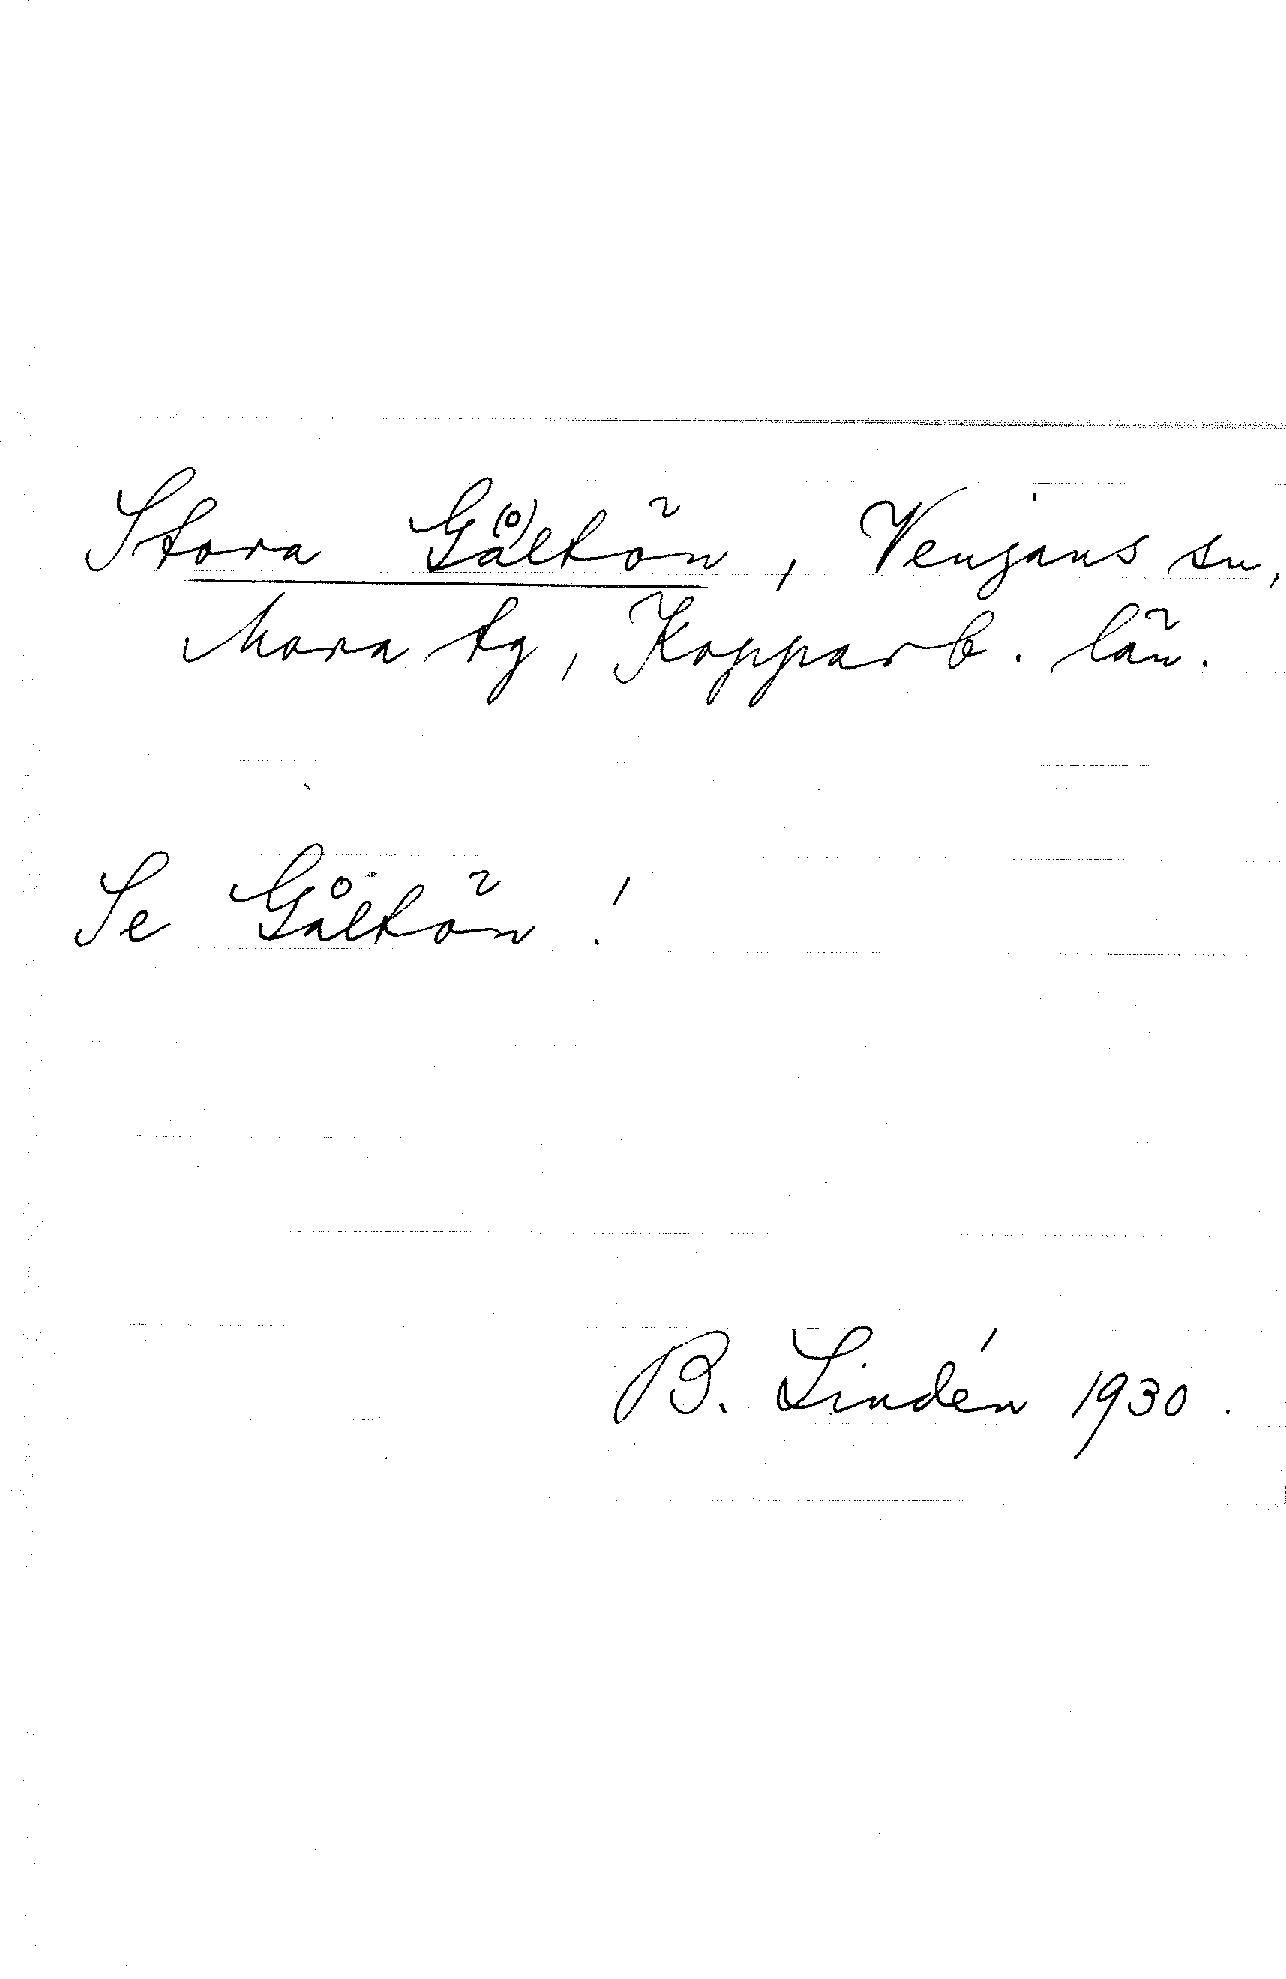 Stora Gå(°)ltön, Venjans sn,
Mora tg, Kopparb. län.
Se Gåltön!
B. Lindén 1930.